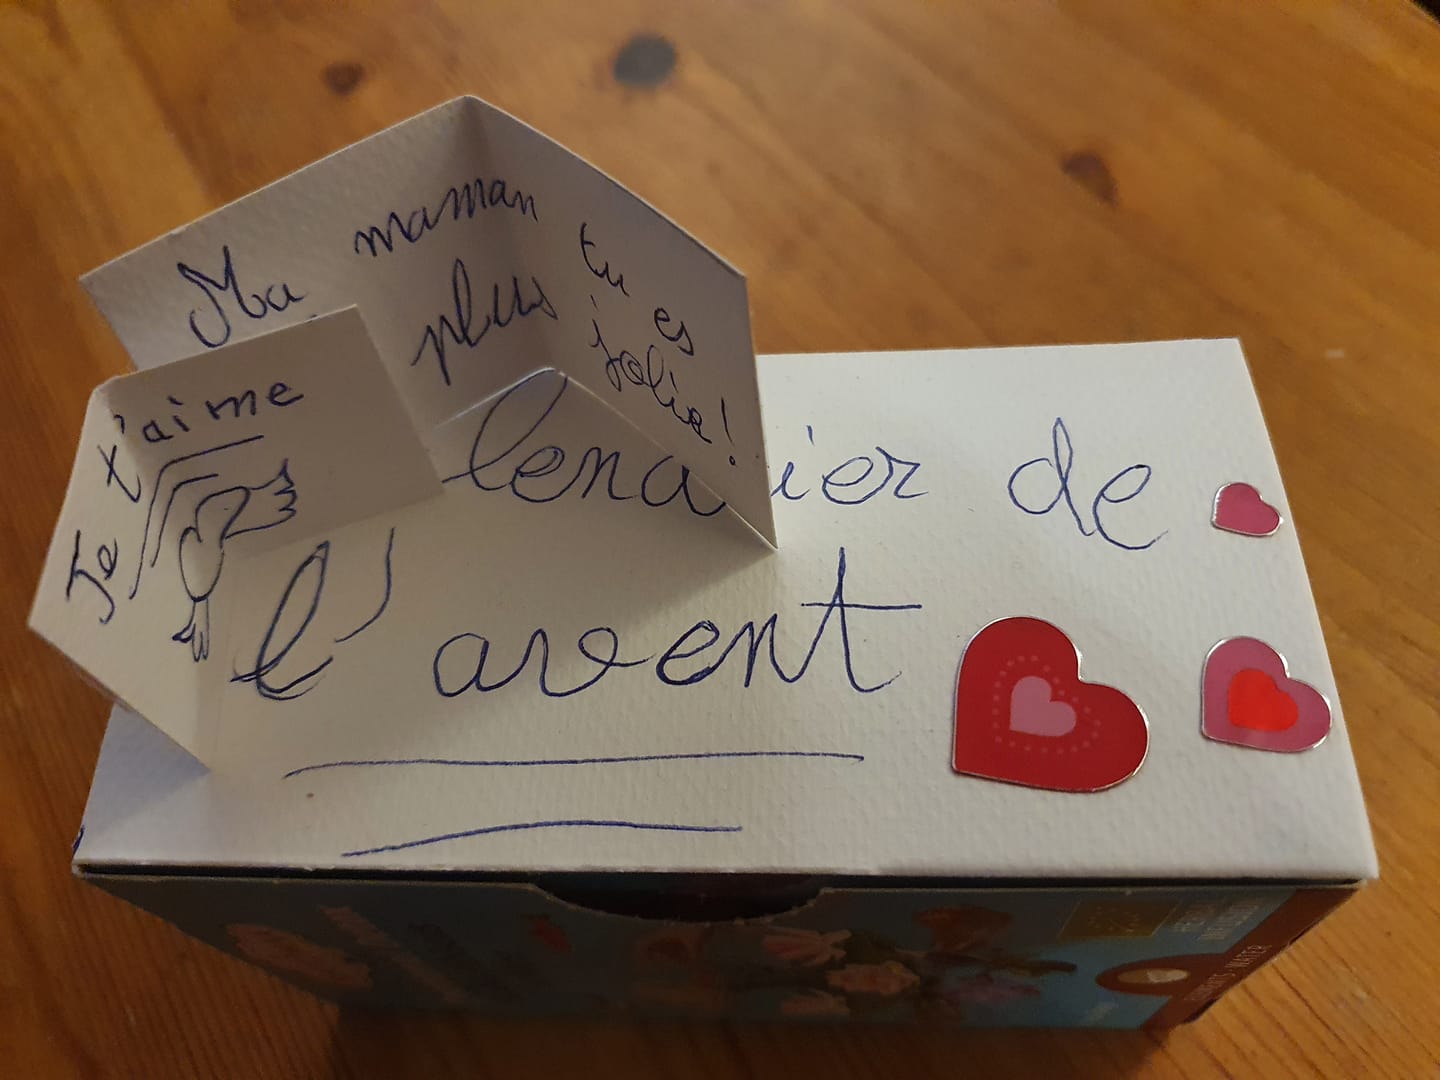 Ma maman tu es
plus jolie!
Je t'aime
lendier de
l'avent